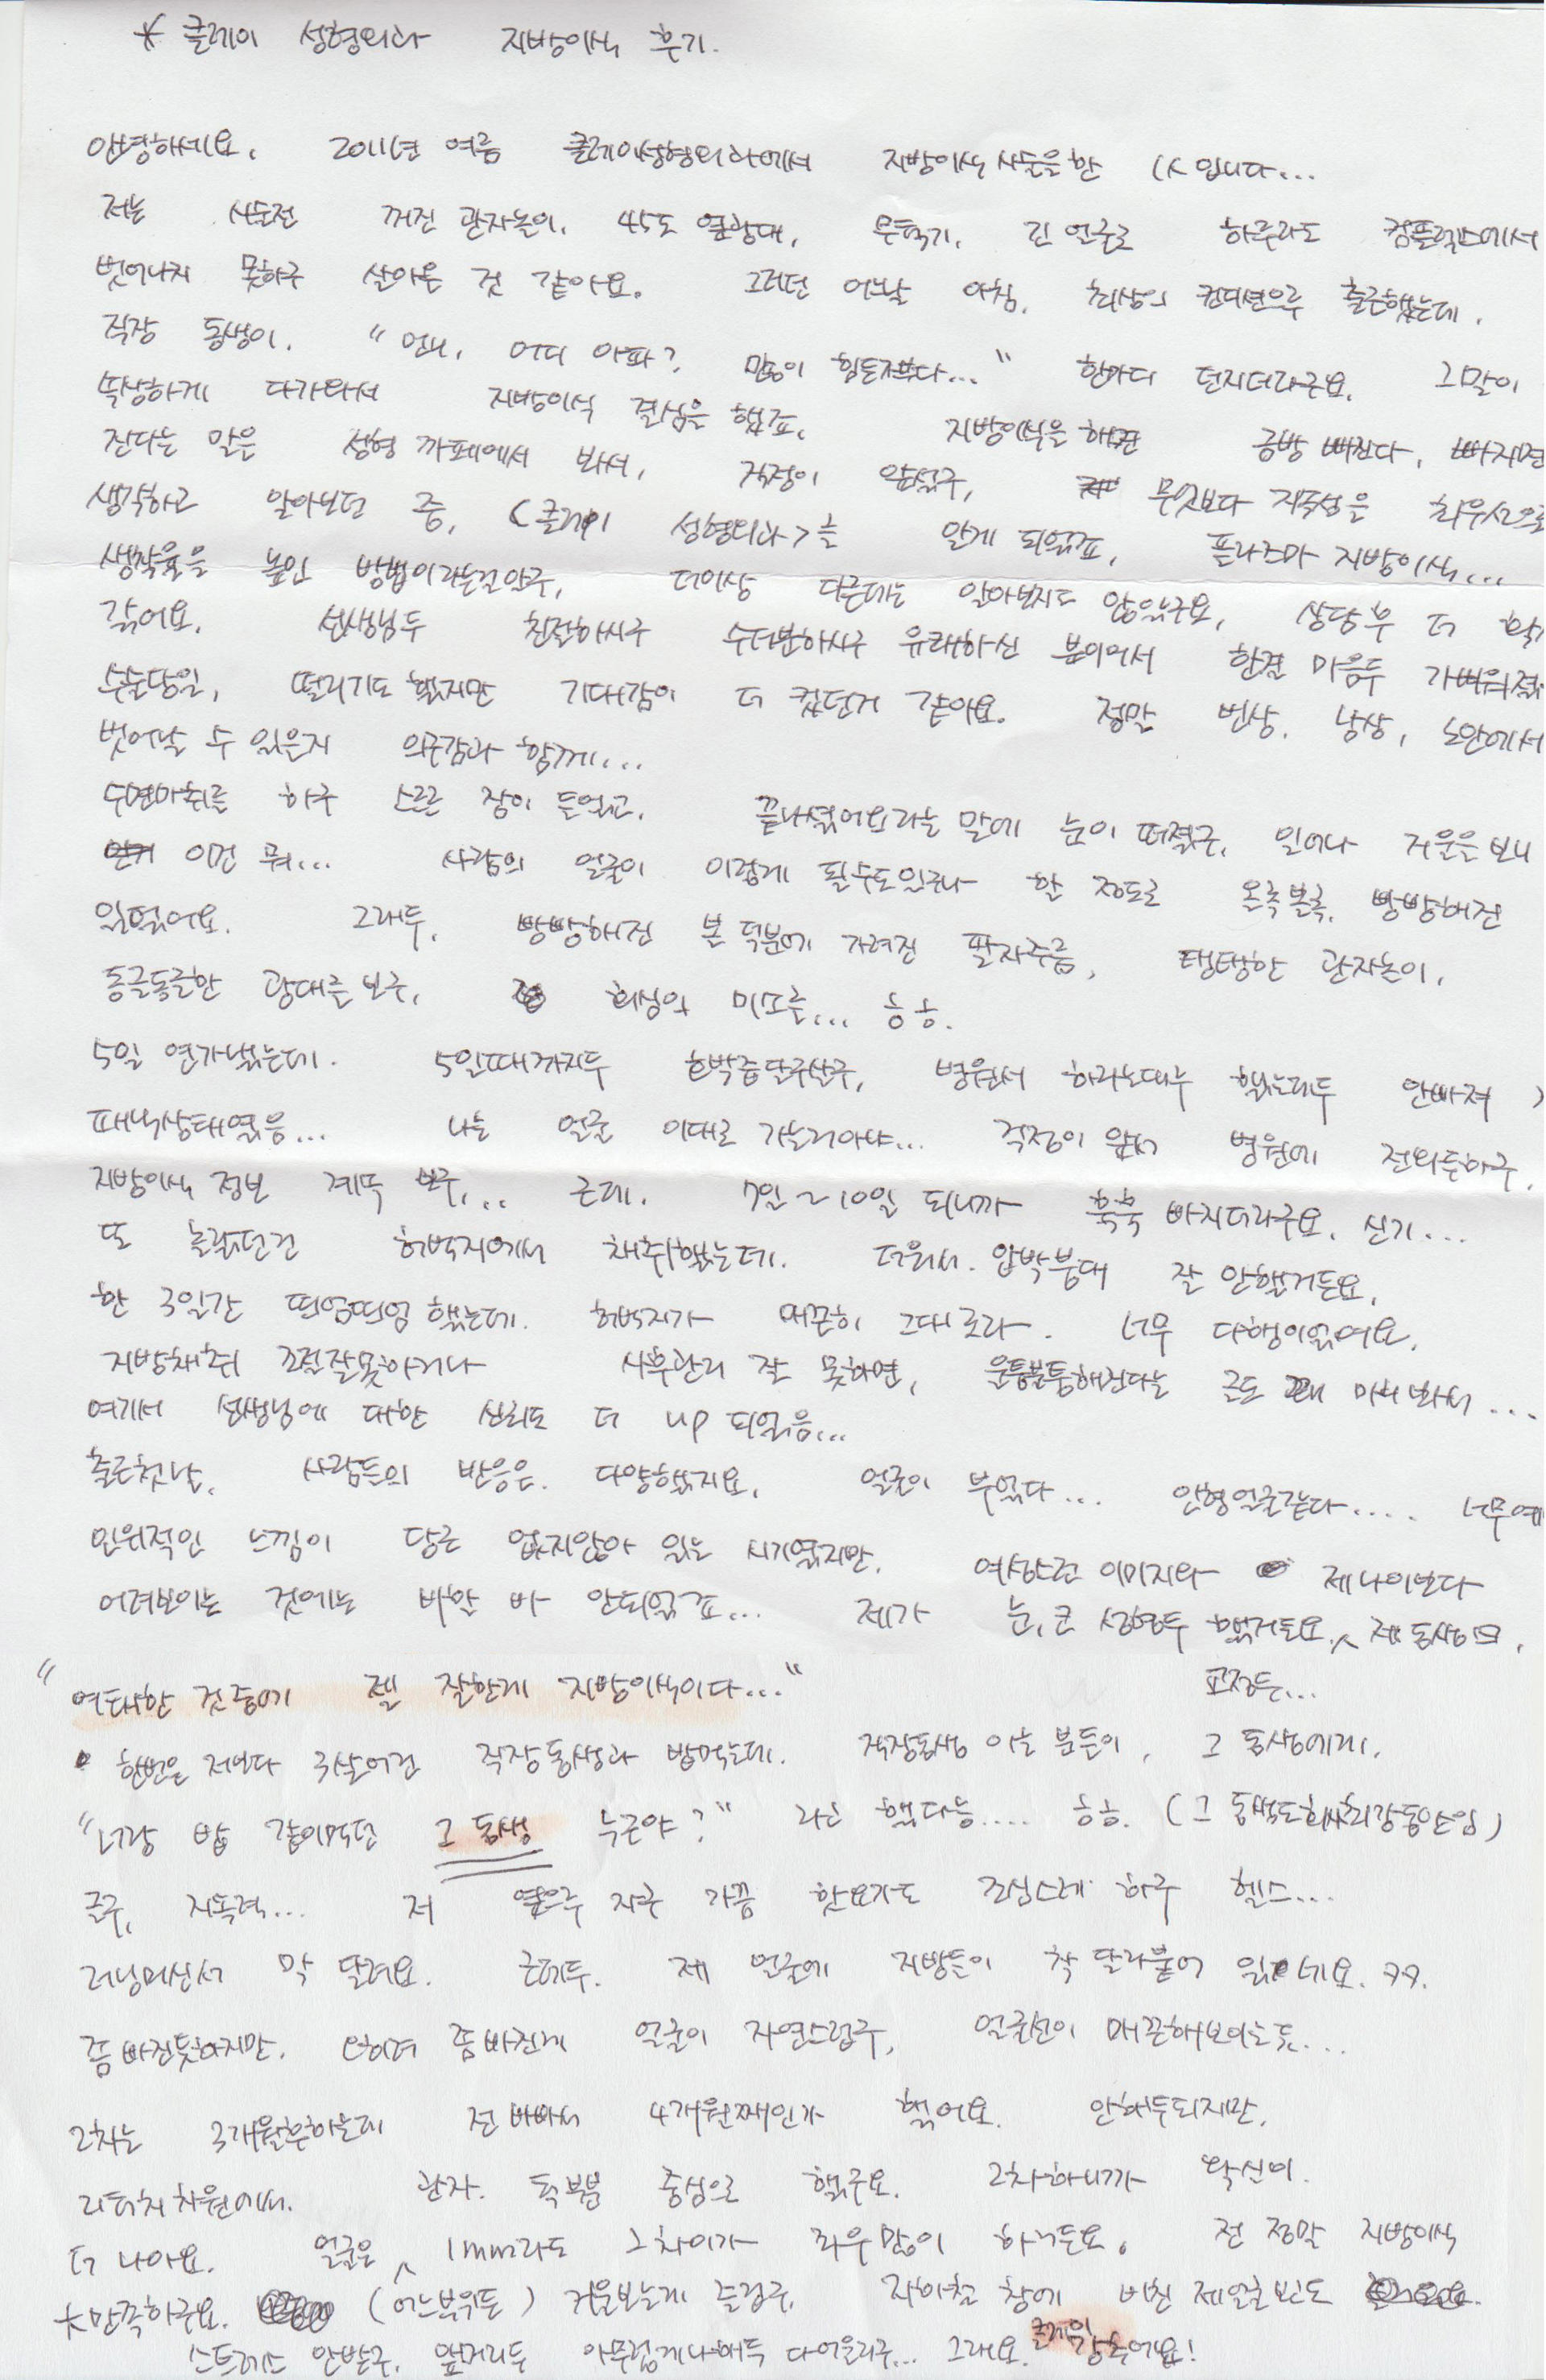 * 클레이 성형외과 지방이식 후기.
안녕하세요. 2011년 여름 클레이성형외과에서 지방이식 시술을한 입니다...
저는 시술전 꺼진 관자놀이, 45도 옆광대, 무턱기, 긴 얼굴로 하루라도 컴플렉스에서
벗어나지 못하구 살아온 것 같아요. 그러던 어느날 아침, 최상의 컨디션으루 출근했는데,
직장 동생이, "언니, 어디 아파? 많이 힘든가부다..." 한마디 던지더라구요. 그말이
속상하게 다가와서 지방이식 결심을 했죠. 지방이식을 해도 금방 빠진다, 빠지면
진다는 말은 성형 까페에서 봐서, 걱정이 앞섰구, 무엇보다 지속성을 최우선으로
생각하고 알아보던 중, <클레이 성형외과>를 알게 되었죠, 플라즈마 지방이식...
생착율을 높인 방법이라는걸알구, 더이상 다른데는 알아보지도 않았구요, 상담후 더
갔어요. 선생님두 친절하시구 수더분하시구 유쾌하신 분이어서 한결 마음두 가벼워졌
수술당일, 떨리기도 했지만 기대감이 더 컸던거 같아요. 정말 빈상, 남상, 노안에서
벗어날 수 있을지 의구감과 함께...
수면마취를 하구 스르르 잠이 들었고, 끝나셨어요라는 말에 눈이 떠졌구, 일어나 거울을 보니
이건 뭐... 사람의 얼굴이 이렇게 될수도있구나 할 정도로 올록볼록, 빵빵해진
있었어요. 그래두, 빵빵해진 볼 덕분에 가려진 팔자주름, 탱탱한 관자놀이,
동글동글한 광대를보구, 회심의 미소를... ㅎㅎ.
5일 연가냈는데. 5일때까지두 호박즙달구살구, 병원서 하라는대루 했는데두 안빠져
패닉상태였음... 나는 얼굴 이대로 가는거야... 걱정이 앞서 병원에 전화두하구,
지방이식 정보 계속 보구... 근데, 7일~10일 되니까 훅훅 빠지더라구요, 신기...
또 놀랐던건 허벅지에서 채취했는데. 더워서. 압박붕대 잘 안했거든요,
한 3일간 띄엄띄엄 했는데, 허벅지가 매끈히 그대로라. 너무 다행이었어요,
지방채취 조절잘못하거나 사후관리 잘 못하면, 울퉁불퉁해진다는 글도 꽤 마니 봐서...
여기서 선생님에 대한 신뢰도 더 up 되었음...
출근첫날, 사람들의 반응은. 다양했지요, 얼굴이 부었다... 인형얼굴같다.... 너무예
인위적인 느낌이 당근 없지않아 있는 시기였지만, 여성스런 이미지와 제나이보다
어려보이는 것에는 비할 바 안되었죠... 제가 눈, 코 성형두 했거든요, 제 동생 曰,
교정두...
"여태한 것중에 젤 잘한게 지방이식이다..."
한번은 저보다 3살어린 직장동생과 밥먹는데, 직장동생 아는 분들이, 그 동생에게,
"너랑 밥 같이먹던 그 동생 누군야?" 라고 했다능.... ㅎㅎ. (그 동생도회사최강동안임)
글구, 지속력... 저 옆으루 자구 가끔 핫요가도 조심스레 하구 헬스...
러닝머신서 막 달려요. 근데두. 제 얼굴에 지방들이 착 달라붙어 있네요. ㅋㅋ.
좀 빠진듯하지만. 오히려 좀 빠진게 얼굴이 자연스럽구, 얼굴선이 매끈해보이는듯...
2차는 3개월후하는데 전 바빠서 4개월째인가 했어요. 안해두되지만,
리터치 차원에서. 관자. 볼부분 중심으로 했구요. 2차하니까 확실히
더 나아요. 얼굴은 1mm라도 그차이가 좌우많이 하거든요. 전 정말 지방이식
大만족하구요. (어느부위든) 거울보는게 즐겁구, 지하철 창에 비친 제얼굴보고도
스트레스 안받구, 앞머리두 아무렇게나해두 다어울리구... 그래요. 클레이 강추여요!